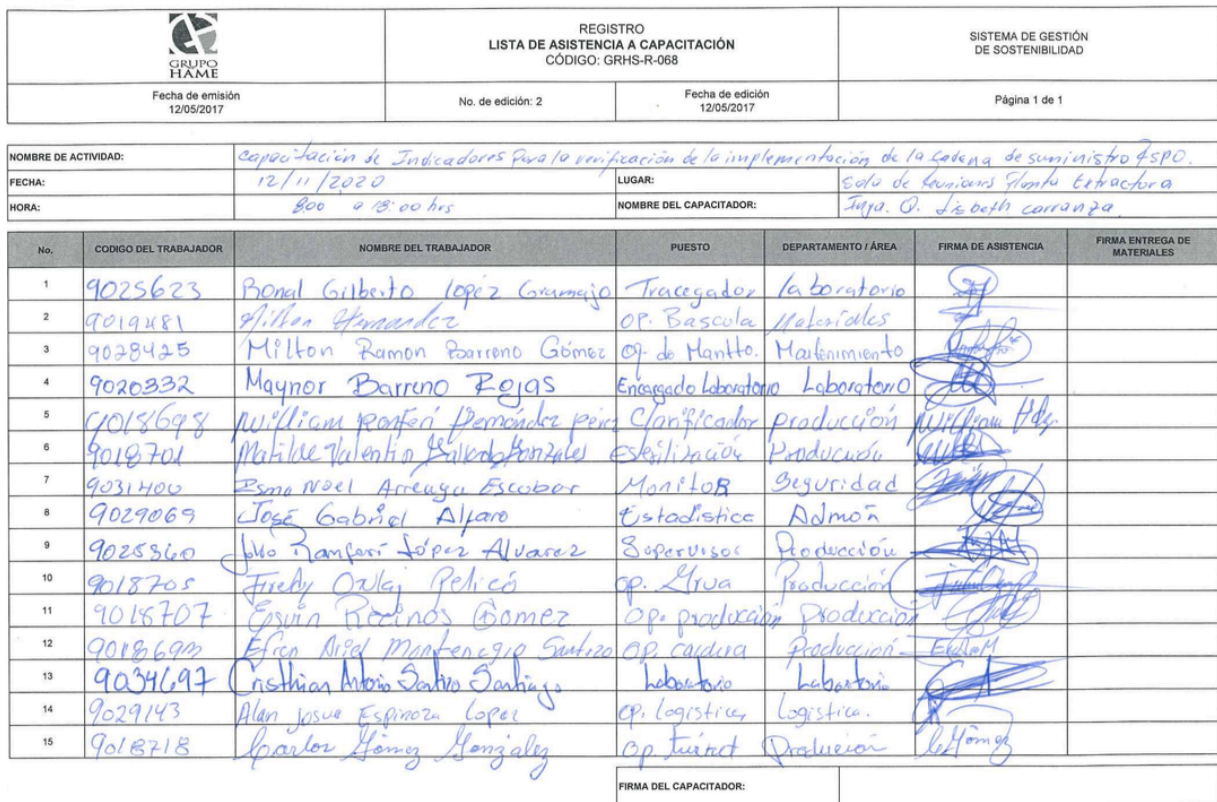 GRUPO HAME
REGISTRO
LISTA DE ASISTENCIA A CAPACITACIÓN
CÓDIGO: GRHS-R-068
SISTEMA DE GESTIÓN
DE SOSTENIBILIDAD
Fecha de emisión
12/05/2017
No. de edición: 2
Fecha de edición
12/05/2017
Página 1 de 1
NOMBRE DE ACTIVIDAD: Capacitación de Indicadores Para la verificación de la implementación de la cadena de suministro RSPO.
FECHA: 12/11/2020 LUGAR: Sala de Reuniones Planta Extractora
HORA: 8:00 a 13:00 hrs NOMBRE DEL CAPACITADOR: Inga. Q. Lisbeth Carranza
No. CODIGO DEL TRABAJADOR NOMBRE DEL TRABAJADOR PUESTO DEPARTAMENTO / ÁREA FIRMA DE ASISTENCIA FIRMA ENTREGA DE MATERIALES
1 9025623 Ronal Gilberto lopez Gramajo Tracegador laboratorio
2 9019481 Milton Hernandez OP. Bascula Materiales
3 9028425 Milton Ramon Barreno Gómez Op. de Mantto. Mantenimiento
4 9020332 Maynor Barreno Rojas Encargado Laboratorio Laboratorio
5 9018698 William Hernández pérez Clarificador producción William Hdez
6 9018701 Matilde Valentin Gonzales Esterilización Producción
7 9031400 Noel Arreaga Escobar Monitor Seguridad
8 9029069 José Gabriel Alfaro Estadistica Admón
9 9025360 Julio Ranferí López Alvarez Supervisor Producción
10 9018705 Fredy Oxlaj Pelicó op. Grua Producción
11 9018707 Esvin Recinos Gomez Op. producción producción
12 Efren Ariel Montenegro Santizo OP. caldera Producción
13 9034697 Cristhian Antonio Santizo Santiago Laboratorio Laboratorio
14 9029143 Alan Josue Espinoza Lopez OP. logistica Logistica.
15 9018718 Carlos Gómez González Op. Producción CGómez
FIRMA DEL CAPACITADOR: